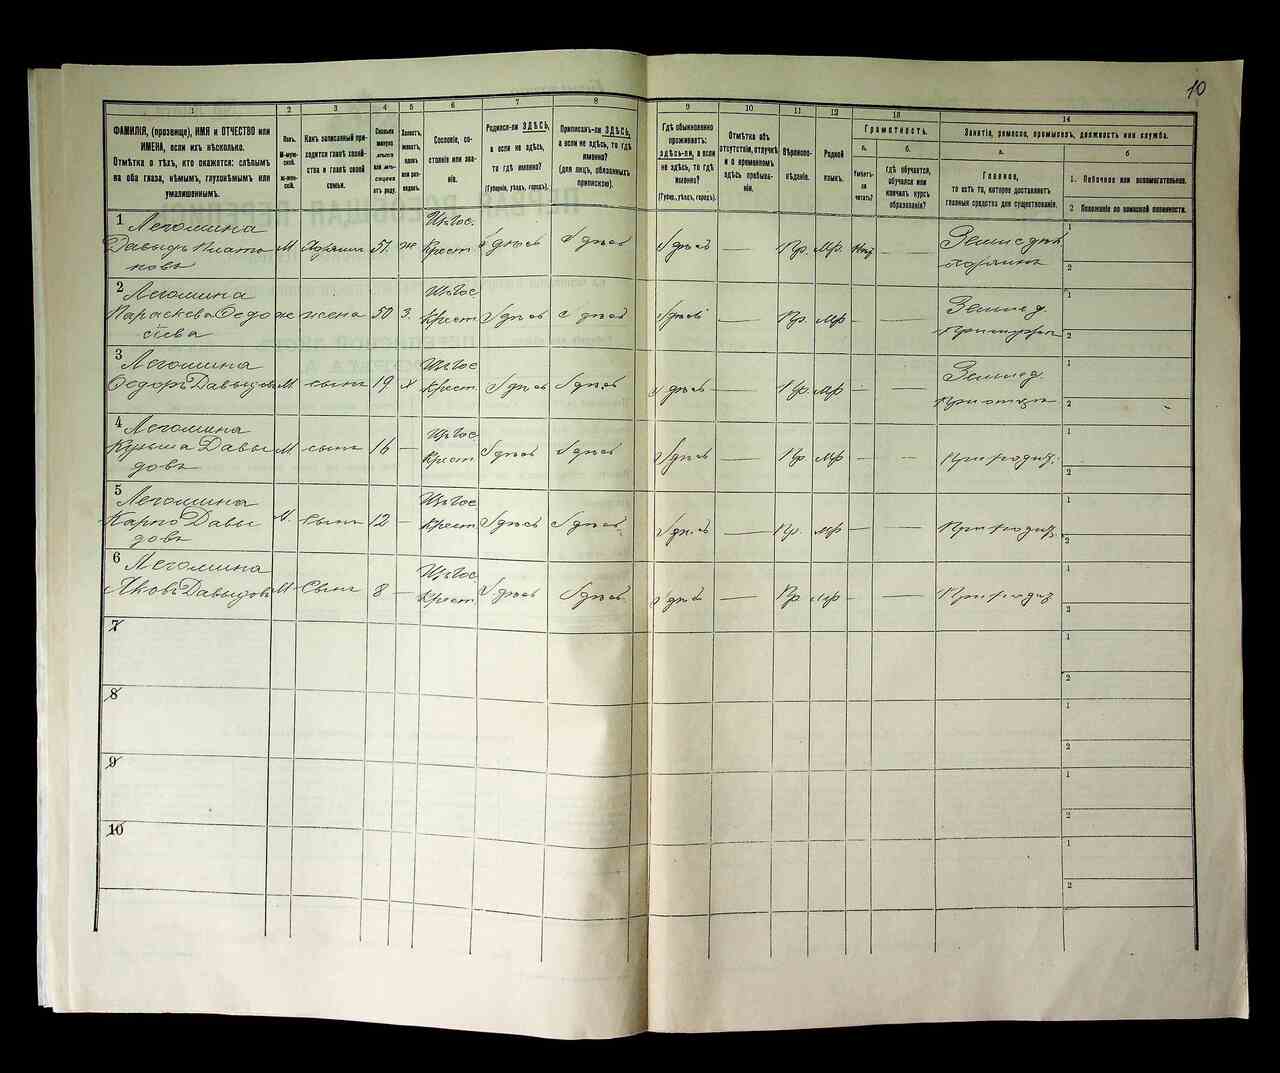 10
1
2
3
4
5
6
7
8
9
10
11
12
13
14
ФАМИЛІЯ, (прозвище), ИМЯ и ОТЧЕСТВО или
ИМЕНА, если ихъ нѣсколько.
Отмѣтка о тѣхъ, кто окажется: слѣпымъ
на оба глаза, нѣмымъ, глухонѣмымъ или
умалишеннымъ.
Полъ.
М-муж-
ской.
Ж-жен-
скій.
Какъ записанный при-
ходится главѣ хозяй-
ства и главѣ своей
семьи.
Сколько
минуло
лѣтъ
или мѣ-
сяцевъ
отъ роду.
Холостъ,
женатъ,
вдовъ
или раз-
веденъ.
Сословіе, со-
стояніе или зва-
ніе.
Родился-ли ЗДѢСЬ,
а если не здѣсь,
то гдѣ именно?
(Губернія, уѣздъ, городъ).
Приписанъ-ли ЗДѢСЬ,
а если не здѣсь, то гдѣ
именно?
(для лицъ, обязанныхъ
припискою).
Гдѣ обыкновенно
проживаетъ:
здѣсь-ли, а если
не здѣсь, то гдѣ
именно?
(Губер., уѣздъ, городъ).
Отмѣтка объ
отсутствіи, отлучкѣ
и о временномъ
здѣсь пребыва-
ніи.
Вѣроиспо-
вѣданіе.
Родной
языкъ.
Грамотность.
а.
Умѣетъ-
ли
читать?
б.
гдѣ обучается,
обучался или
кончилъ курсъ
образованія?
Занятіе, ремесло, промыселъ, должность или служба.
а.
Главное,
то есть то, которое доставляетъ
главныя средства для существованія.
б
1. Побочное или вспомогательное.
2 Положеніе по воинской повинности.
1 Легомина
Давыдъ Плато
новъ
М Хозяинъ 51 ж Изъ Гос. Крест здѣсь здѣсь здѣсь — Пр. Мр. Нѣт — Хозяинъ
1
2
2 Легомина
Параскева Ѳедо
сіева
ж жена 50 З. Изъ Гос Крест здѣсь здѣсь здѣсь — Пр. Мр — — Землед.
1
2
3 Легомина
Ѳедоръ Давыдовъ
М сынъ 19 х Изъ Гос Крест здѣсь здѣсь здѣсь — Пр. Мр — — Землед.
При отцѣ
1
2
4 Легомина
Кузьма Давы
довъ
М сынъ 16 — Изъ Гос Крест здѣсь здѣсь здѣсь — Пр. Мр — — При родит.
1
2
5 Легомина
Карпо Давы
довъ
М. сынъ 12 — Изъ Гос Крест здѣсь здѣсь здѣсь — Пр. Мр — — При родит.
1
2
6 Легомина
Яковъ Давыдовъ
М Сынъ 8 — Изъ Гос Крест здѣсь здѣсь здѣсь — Пр Мр — — При родит
1
2
7
1
2
8
1
2
9
1
2
10
1
2